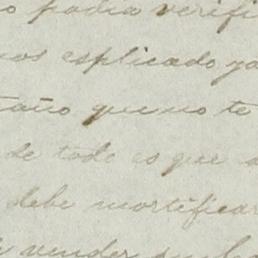 o podia verifi
nos esplicado ya
taño que no te
se todo es que
debe mortificar
vender